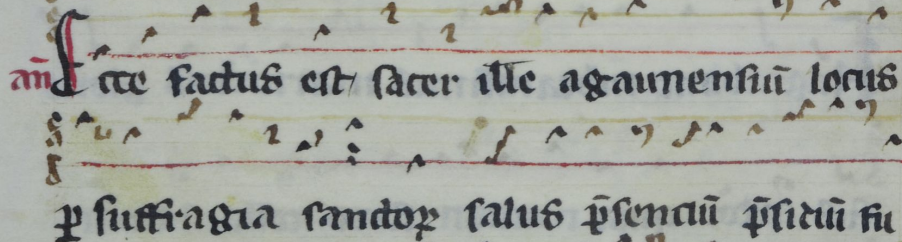 añ Ecce factus est sacer ille agaunensiū locus
ꝑ suffragia sanctoꝝ salus p̄senciū p̄sidiū fu